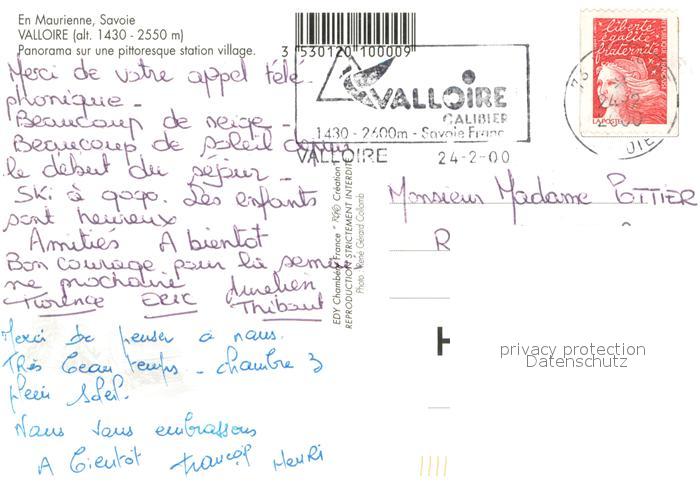 En Maurienne, Savoie
VALLOIRE (alt. 1430 - 2550 m)
Panorama sur une pittoresque station village.
3 530120 100009
Merci de votre appel télé-
phonique -
Beaucoup de neige -
Beaucoup de soleil depuis
le début du séjour -
Ski à gogo. Les enfants
sont heureux
Amitiés A bientot
Bon courage pour la semai
ne prochaine
Florence Eric Aurelien
Thibaut
Merci de penser à nous.
Très beau temps - chambre 3
plein soleil.
Nous vous embrassons
A bientôt Françoise Henri
VALLOIRE
GALIBIER
1430 - 2600m - Savoie France
VALLOIRE 24-2-00
EDY Chambéry France - R/© Création
REPRODUCTION STRICTEMENT INTERDITE
Photo : René Gérard Collomb
liberté
égalité
fraternité
LA POSTE
73
24-2
OIE
Monsieur Madame POTTIER
R
H
privacy protection
Datenschutz